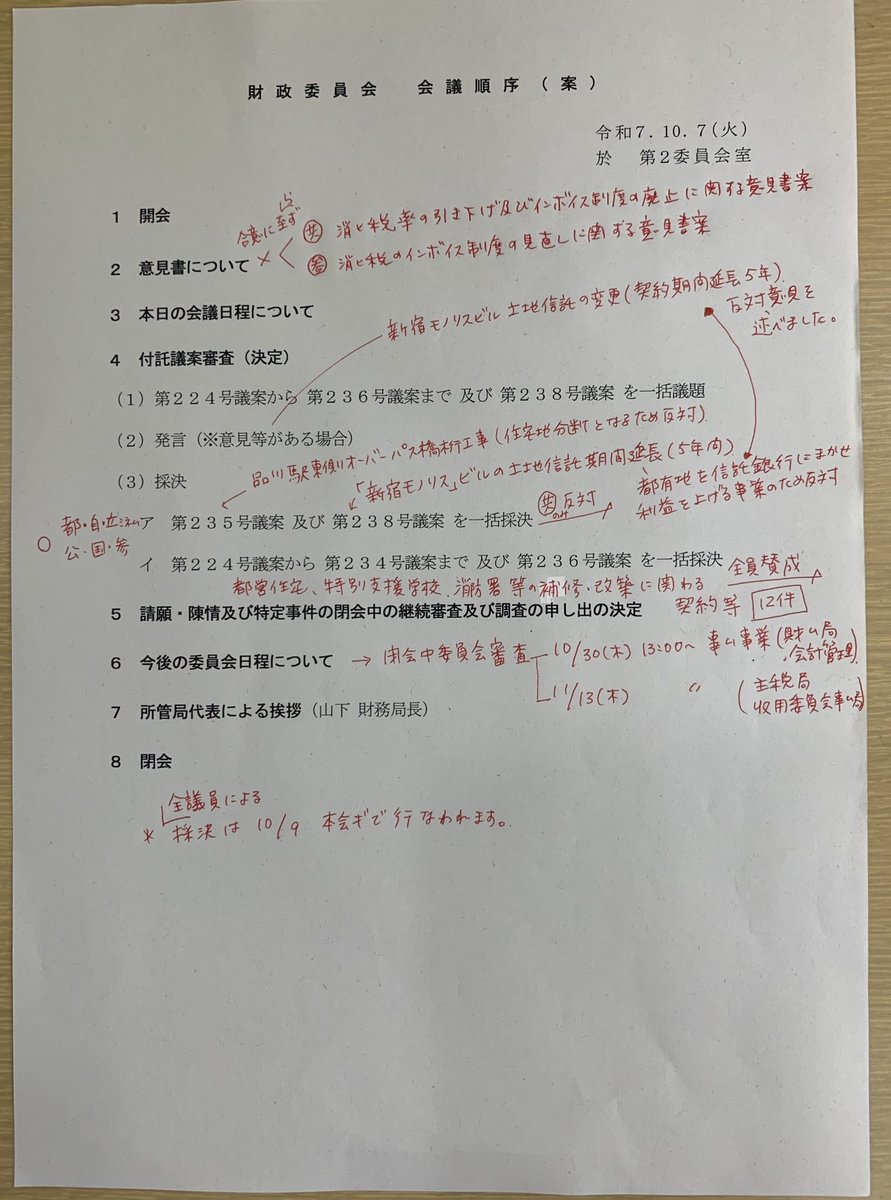 財政委員会　会議順序（案）
令和7．10．7(火)
於　第2委員会室
1　開会
合意に至ず
共　消ヒ税率の引き下げ及びインボイス制度の廃止に関する意見書案
2　意見書について
×
参　消ヒ税のインボイス制度の見直しに関する意見書案
3　本日の会議日程について
新宿モノリスビル土地信託の変更(契約期間延長5年)
反対意見を
述べました。
4　付託議案審査（決定）
（1）第224号議案から 第236号議案まで 及び 第238号議案 を一括議題
（2）発言（※意見等がある場合）
品川駅東側オーバーパス橋桁工事(住宅地分断となるため反対)
（3）採決
「新宿モノリス」ビルの土地信託期間延長(5年間)
都有地を信託銀行にまかせ
利益を上げる事業のため反対
○
都・自・
公・国・参
ア　第235号議案 及び 第238号議案 を一括採決
共のみ反対
イ　第224号議案から 第234号議案まで 及び 第236号議案 を一括採決
全員賛成
都営住宅、特別支援学校、消防署等の補修・改築に関わる
契約等 12件
5　請願・陳情及び特定事件の閉会中の継続審査及び調査の申し出の決定
6　今後の委員会日程について
→ 閉会中委員会審査
10/30(木) 13:00〜 事ム事業(財ム局
会計管理)
11/13(木)　〃　(主税局
収用委員会事ム局)
7　所管局代表による挨拶（山下 財務局長）
8　閉会
全議員による
* 採決は 10/9 本会ギで行なわれます。